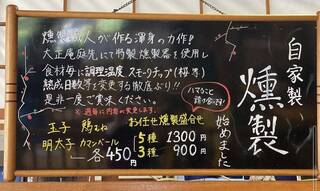 自家製
燻製
始めました
燻製職人が作る渾身の力作!!
大正庵庭先にて特製燻製器を使用し
食材毎に調理温度 スモークチップ(桜 等)
熟成日数等を変更する徹底ぶり!!
是非一度ご賞味ください。
※週毎に内容の変更します。
ハマること
請け合いです!
玉子 鶏むね
明太子 カマンベール
各450円
お任せ燻製盛合せ
5種 1300円
3種 900円